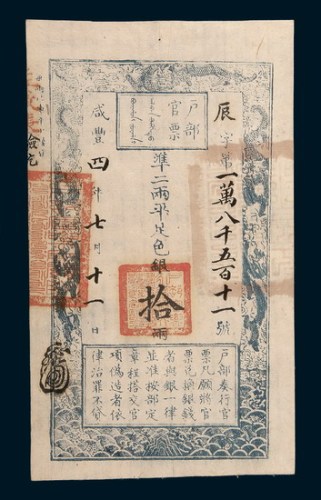 戶部
官票
辰字第一萬八千五百十一號
準二兩平足色銀拾兩
咸豐四年七月十一日
戶部奏行官
票凡願將官
票兌換銀錢
者與銀一律
並准按部定
章程搭交官
項偽造者依
律治罪不貸